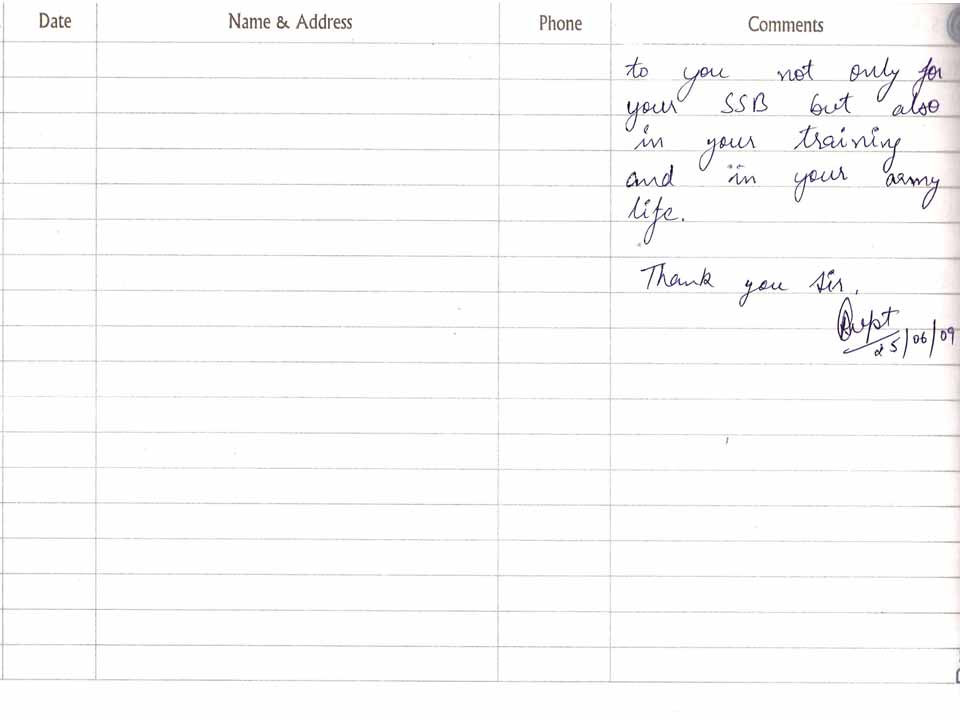 Date Name & Address Phone Comments
to you not only for
your SSB but also
in your training
and in your army
life.
Thank you sir.
25/06/09